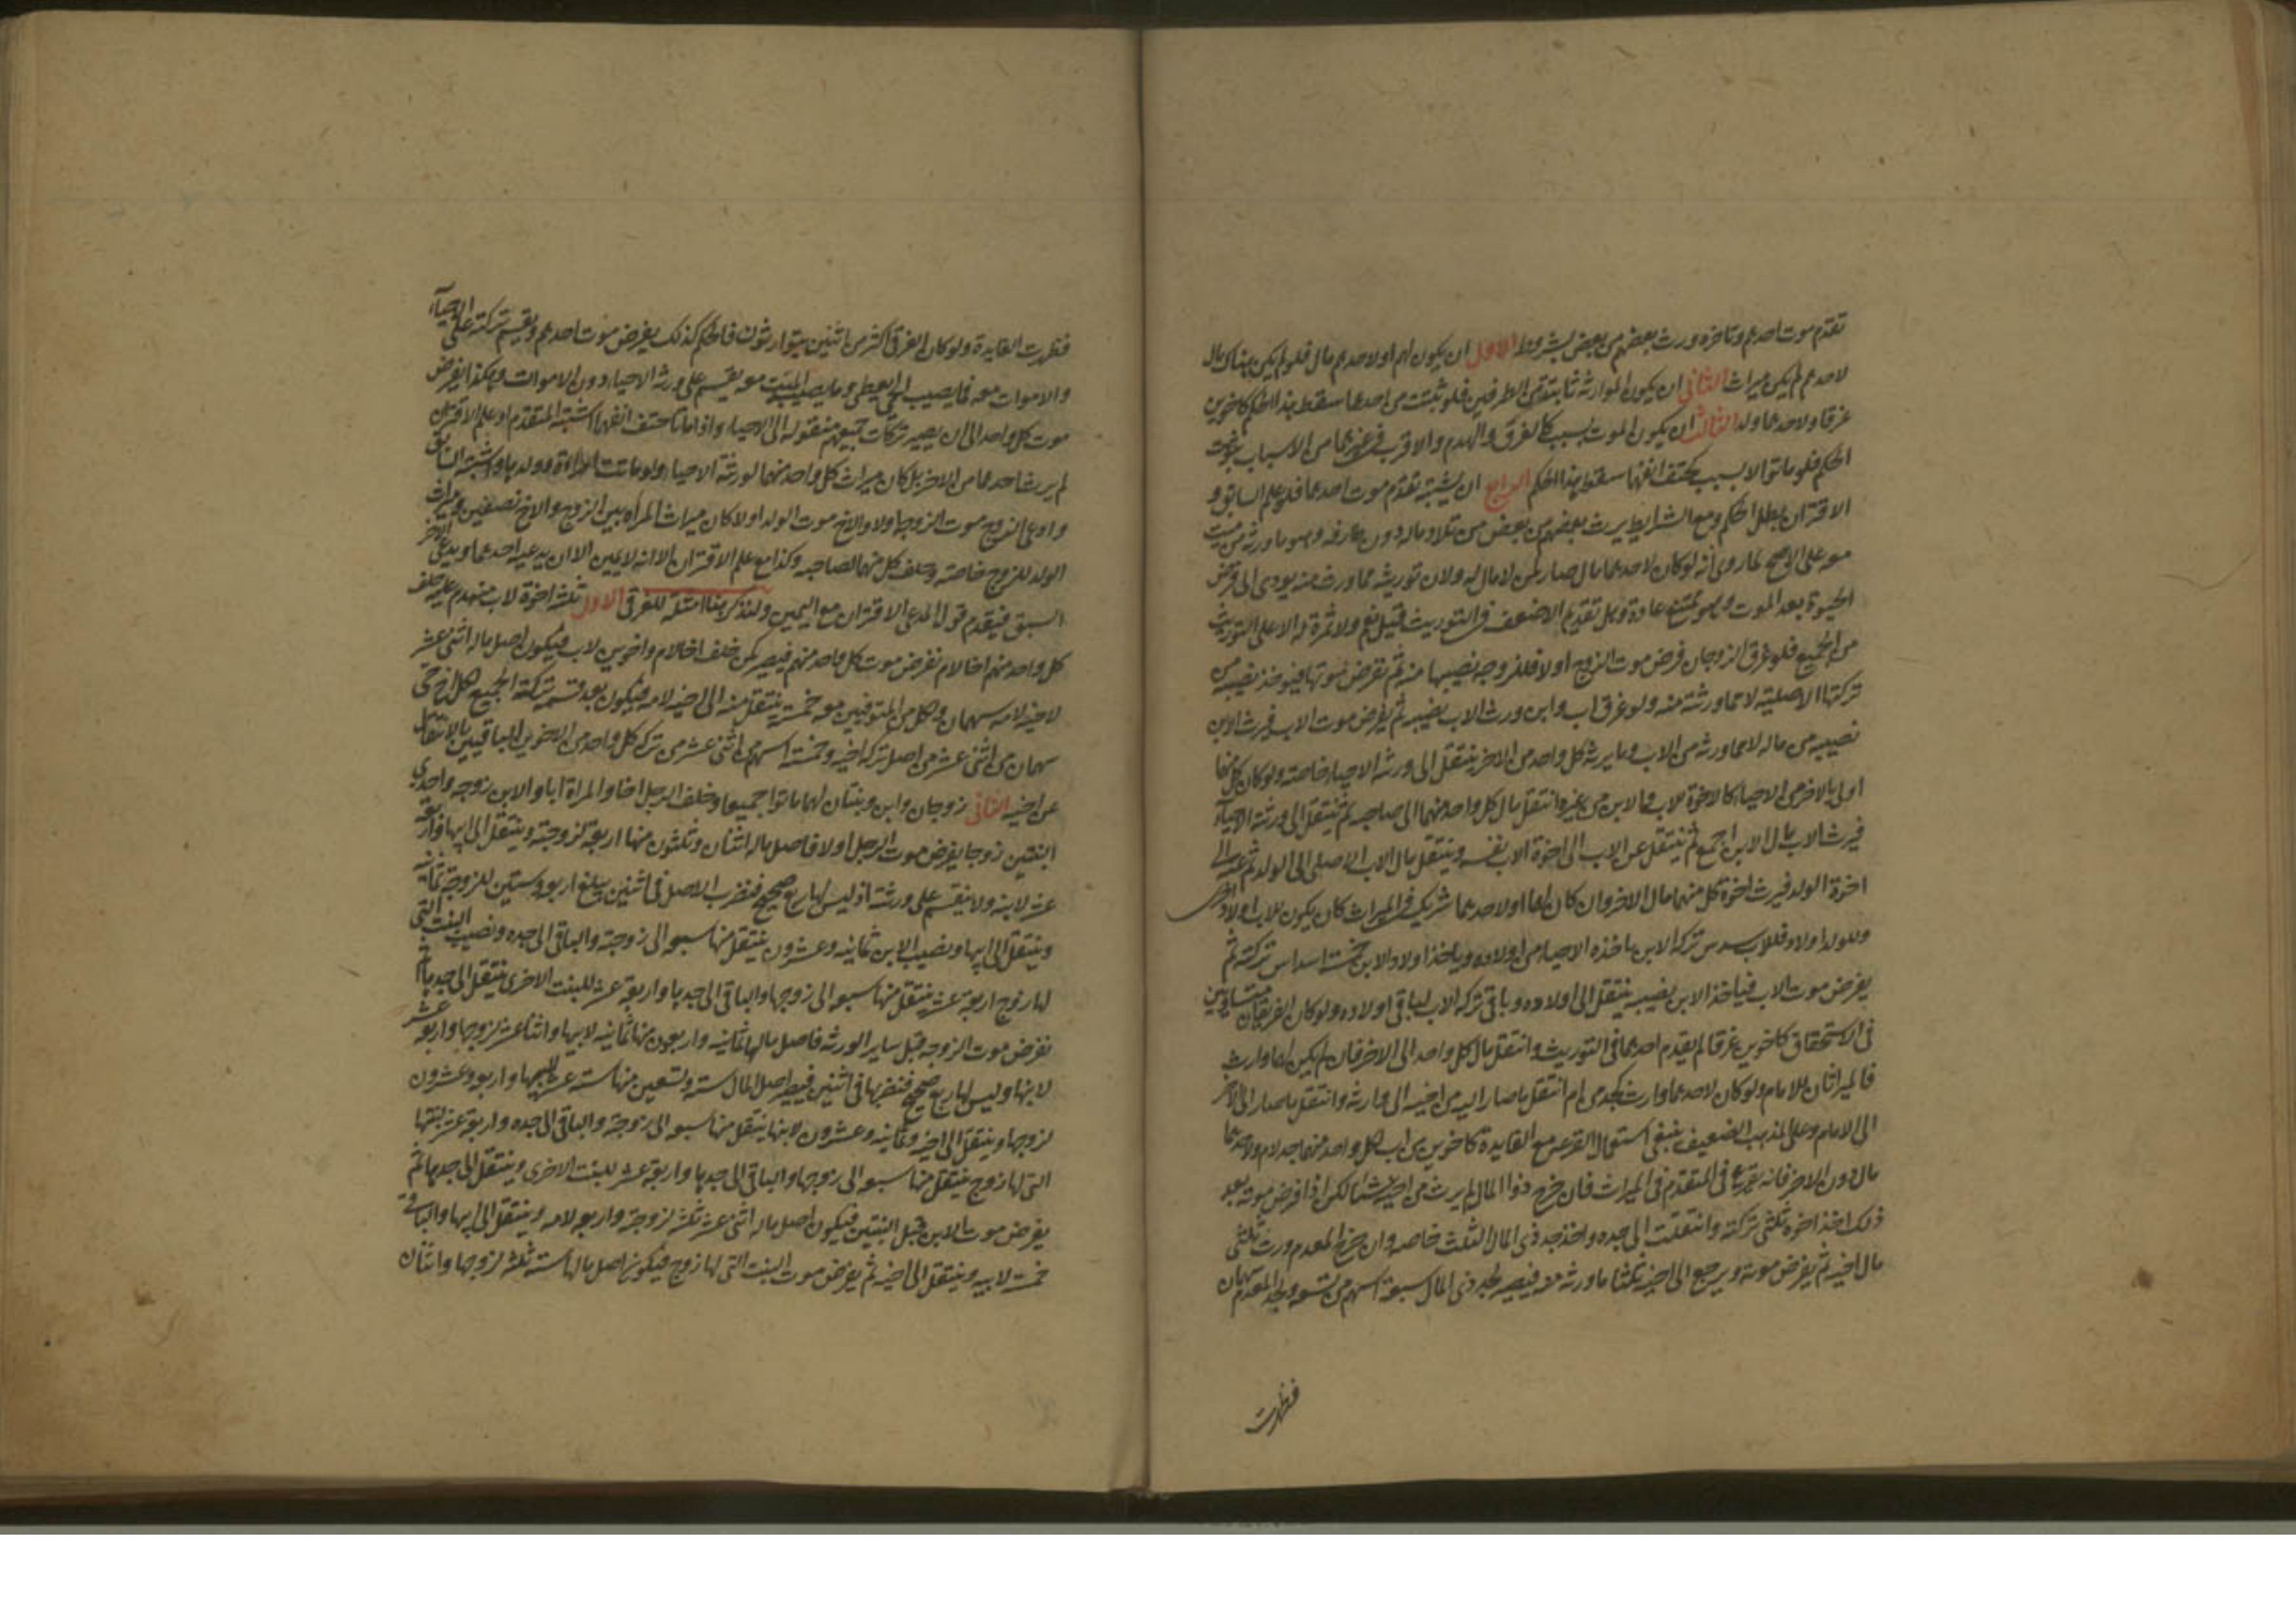 تقدم موت احدهم وتاخره ورث بعضهم من بعض بشروط الاول ان يكون لهم او لاحدهم مال فلو لم يكن هناك مال
لاحدهم لم يكن ميراث الثاني ان يكون الموارثة ثابتة من الطرفين فلو ثبتت من احدهما سقط هذا الحكم كاخوين
غرقا ولاحدهما ولد الثالث ان يكون الموت بسبب كالغرق والهدم والاقرب في غيرهما من الاسباب ثبوت
الحكم فلو ماتوا لا بسبب كحتف انفهما سقط هذا الحكم الرابع ان يشتبه تقدم موت احدهما فلو علم السابق و
الاقتران بطل الحكم ومع الشرايط يرث بعضهم من بعض من تلاد ماله دون طارفه وهو ما ورثه من ميت
معه على الاصح لما روى انه لو كان لاحدهما مال صار لمن لا مال له ولان توريثه مما ورث منه يودى الى فرض
الحيوة بعد الموت وهو ممتنع عادة وهل تقديم الاضعف في التوريث قيل نعم ولا ثمرة له الا على التوريث
من الجميع فلو غرق الزوجان فرض موت الزوج اولا فللزوجه نصيبها منه ثم نفرض موتها فيوخذ نصيبه من
تركتها الاصلية لا مما ورثته منه ولو غرق اب وابن ورث الاب نصيبه ثم يفرض موت الاب فيرث الابن
نصيبه من ماله لا مما ورثه من الاب وما يرثه كل واحد من الاخر ينتقل الى ورثه الاحياء خاصته ولو كان كل منهما
اولى بالاخر من الاحياء كالاخوة للاب والابن من غيره انتقل مال كل واحد منهما الى صاحبه ثم ينتقل الى ورثته الاحياء
فيرث الاب مال الابن اجمع ثم ينتقل عن الاب الى اخوة الاب نفسه وينتقل مال الاب الاصلى الى الولد ثم عنه الى
اخوة الولد فيرث اخوة كل منهما مال الاخر وان كان لهما او لاحدهما شريك في الميراث كان يكون للاب اولاد اخر
وللولد اولاد فللاب سدس تركه الابن ياخذه الاحياء من اولاده وياخذ اولاد الابن خمسة اسداس تركته ثم
يفرض موت الاب فياخذ الابن نصيبه ينتقل الى اولاده وباقى تركه الاب لباقى اولاده ولو كان الغريقان متساويين
فى الاستحقاق كاخوين غرقا لم يقدم احدهما فى التوريث وانتقل مال كل واحد الى الاخر فان لم يكن لهما وارث
فالميراثان للامام ولو كان لاحدهما وارث كجد من ام انتقل ما صار اليه من اخيه الى وارثه وانتقل ما صار الى الاخر
الى الامام وعلى المذهب الضعيف ينبغى استعمال القرعه مع الفايدة كاخوين من اب لكل واحد منهما جد لام ولاحدهما
مال دون الاخر فانه يقرع فى المتقدم فى الميراث فان خرج ذوا المال لم يرث من اخيه شيئا لكن اذا فرض موته بعد
ذلك اخذ اخوه ثلثى تركته وانتقلت الى جده واخذ جد ذى المال الثلث خاصه وان خرج المعدم ورث ثلثى
مال اخيه ثم يفرض موته ويرجع الى اخيه ثلثا ما ورثه منه فيصير لجد ذى المال سبعة اسهم من تسعه ولجد المعدم سهمان
فظهرت
فظهرت الفايدة ولو كان الغرقى اكثر من اثنين يتوارثون فالحكم كذلك يفرض موت احدهم ويقسم تركته على الاحياء
والاموات معه فما يصيب الحى يعطى وما يصيب الميت معه يقسم على ورثه الاحياء دون الاموات وهكذا يفرض
موت كل واحد الى ان يصير تركات جميعهم منقوله الى الاحياء واذا ماتا حتف انفهما واشتبه المتقدم او علم الاقتران
لم يرث احدهما من الاخر بل كان ميراث كل واحد منهما لورثته الاحياء ولو ماتت امراة وولدها واشتبه السابق
وادعى الزوج موت الزوجة اولا والاخ موت الولد اولا كان ميراث المراه بين الزوج والاخ نصفين وميراث
الولد للزوج خاصته وحلف كل منهما لصاحبه وكذا مع علم الاقتران الا انه لا يمين الا ان يدعيه احدهما ويدعى الاخر
السبق فيقدم قول مدعى الاقتران مع اليمين ولنذكر هنا امثلة للغرقى الاول ثلثه اخوة لاب منهدم عليهم خلف
كل واحد منهم اخا لام نفرض موت كل واحد منهم فيصير كمن خلف اخا لام واخوين لاب فيكون اصل ماله اثنى عشر
لاخيه لامه سهمان ولكل من المتوفيين معه خمسة ينتقل منه الى اخيه لامه فيكون بعد قسمه تركة الجميع لكل اخ حى
سهمان من اثنى عشر من اصل تركه اخيه وخمسة اسهم من اثنى عشر من تركه كل واحد من الاخوين الباقيين بالانتقال
عن اخيه الثانى زوجان وابن وبنتان لهما ماتوا جميعا وخلف الرجل اخا والمراة ابا والابن زوجه واحدى
البنتين زوجا يفرض موت الرجل اولا فاصل ماله اثنان وثلثون منها اربعة لزوجته وينتقل الى ابيها واربعة
عشر لابنه ولا ينقسم على ورثته اذ ليس لها ربع صحيح فنضرب الاصل فى اثنين يبلغ اربعه وستين للزوجة ثمانيه
وينتقل الى ابيها ونصيب الابن ثمانيه وعشرون ينتقل منها سبعه الى زوجته والباقى الى جده ونصيب البنت التى
لها زوج اربعة عشر ينتقل منها سبعه الى زوجها والباقى الى جدها واربعة عشر للبنت الاخرى ينتقل الى جدها ثم
نفرض موت الزوجه قبل ساير الورثه فاصل مالها ثمانيه واربعون منها ثمانيه لابيها واثنا عشر لزوجها واربعه عشر
لابنها وليس لها ربع صحيح فنضربها فى اثنين فيصير اصل المال سته وتسعين منها سته عشر لابيها واربعه وعشرون
لزوجها وينتقل الى اخيه وثمانيه وعشرون لابنها ينتقل منها سبعه الى زوجته والباقى الى جده واربعة عشر لبنتها
التى لها زوج ينتقل منها سبعه الى زوجها والباقى الى جدها واربعة عشر للبنت الاخرى وينتقل الى جدها ثم
يفرض موت الابن قبل البنتين فيكون اصل ماله اثنى عشر ثلثه لزوجته واربعه لامه وينتقل الى ابيها والباقى
خمسة لابيه وينتقل الى اخيه ثم يفرض موت البنت التى لها زوج فيكون اصل مالها سته ثلثه لزوجها واثنان